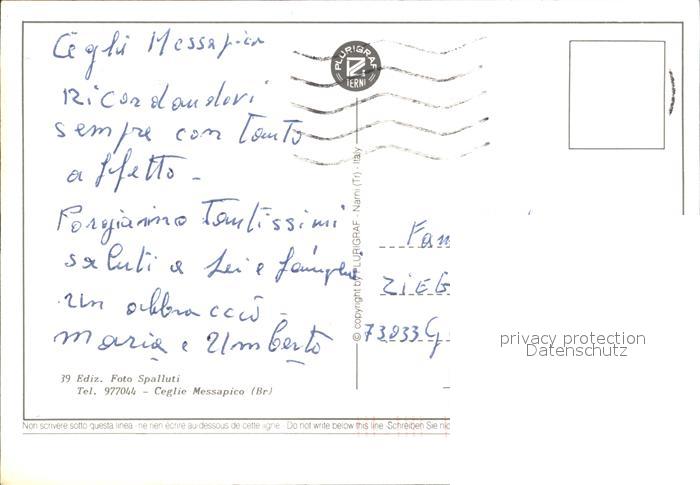 Ceglie Messapico
Ricordandovi
sempre con tanto
affetto -
Porgiamo Tantissimi
saluti a Lei e famiglia
un abbraccio -
Maria e Umberto
39 Ediz. Foto Spalluti
Tel. 977044 - Ceglie Messapico (Br)
PLURIGRAF
TERNI
© copyright by PLURIGRAF - Narni (Tr) - Italy
Fam
ZIEG
73033 G
privacy protection
Datenschutz
Non scrivere sotto questa linea - ne rien écrire au-dessous de cette ligne - Do not write below this line - Schreiben Sie nic